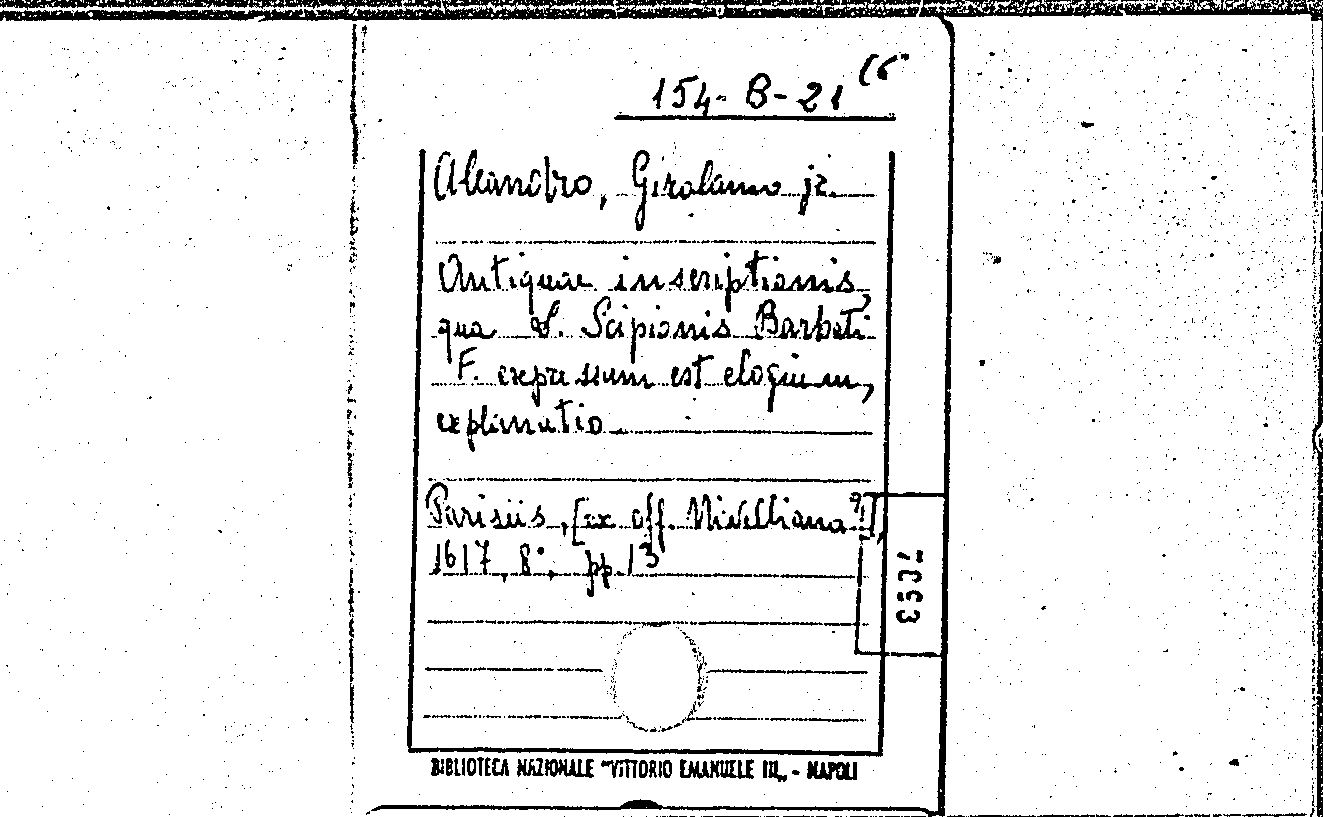 154-B-21 (6
Aleandro, Girolamo jr.
Antiquae inscriptionis,
qua L. Scipionis Barbati
F. expressum est elogium,
explanatio
Parisiis, [ex off. Nivelliana?],
1617, 8°, pp. 13
BIBLIOTECA NAZIONALE "VITTORIO EMANUELE III„ - NAPOLI